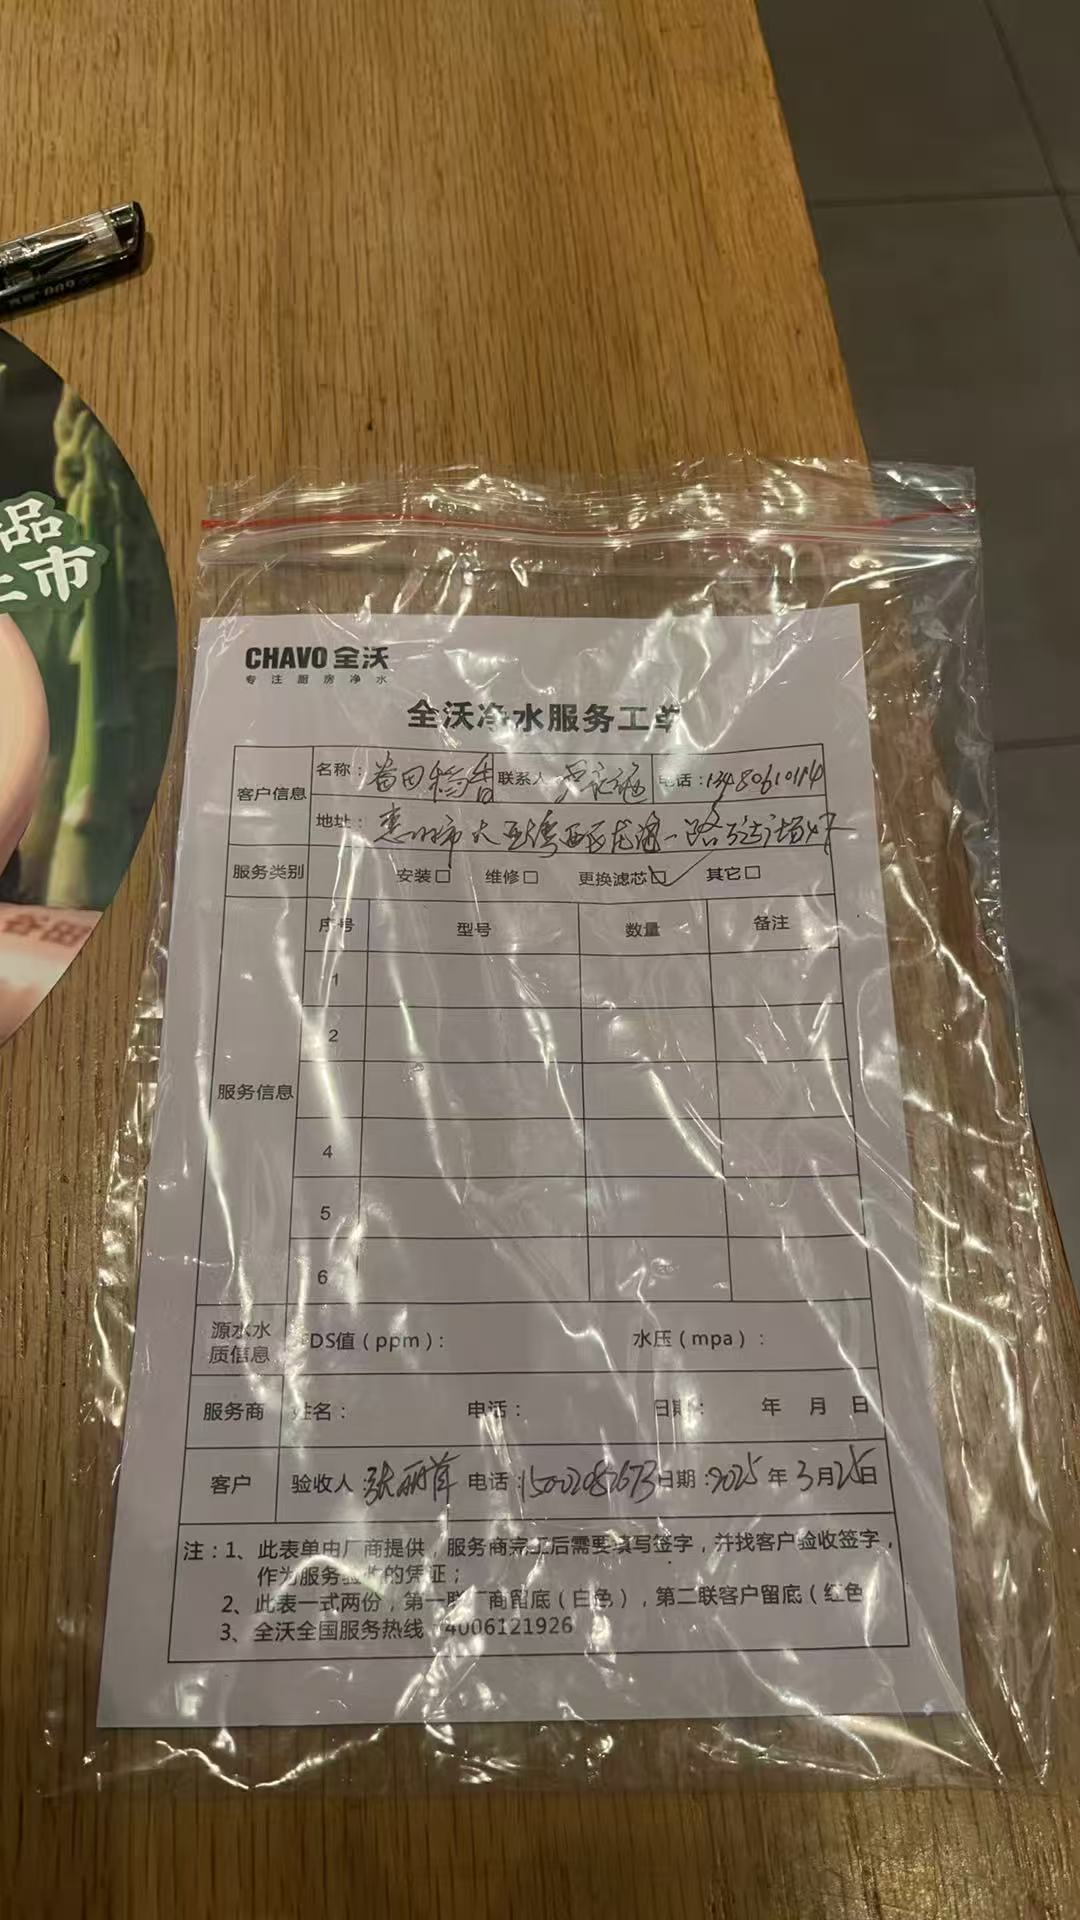 品
上市
谷田
CHAVO 全沃
专注厨房净水
全沃净水服务工单
客户信息
名称: 谷田稻香 联系人 电话:13480610114
地址: 惠州市大亚湾西区龙海一路
服务类别 安装□ 维修□ 更换滤芯☑ 其它□
服务信息
序号 型号 数量 备注
1
2
4
5
6
源水水质信息
DS值(ppm): 水压(mpa):
服务商 姓名: 电话: 日期: 年 月 日
客户 验收人 张丽 电话:15002082673 日期:2025年3月25日
注:1、此表单由厂商提供,服务商完工后需要填写签字,并找客户验收签字,
作为服务验收的凭证;
2、此表一式两份,第一联厂商留底(白色),第二联客户留底(红色
3、全沃全国服务热线 4006121926